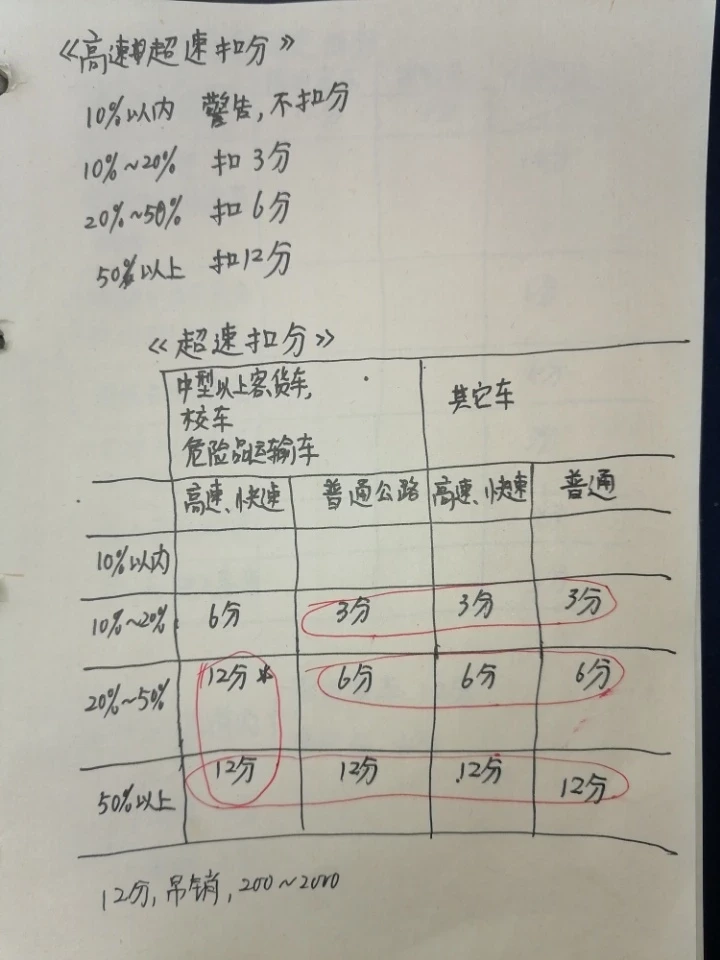 《高速超速扣分》
10%以内 警告,不扣分
10%~20% 扣3分
20%~50% 扣6分
50%以上 扣12分
《超速扣分》
中型以上客、货车, 其它车
校车
危险品运输车
高速、快速 普通公路 高速、快速 普通
10%以内
10%~20% 6分 3分 3分 3分
20%~50% 12分* 6分 6分 6分
50%以上 12分 12分 12分 12分
12分,吊销,200~2000